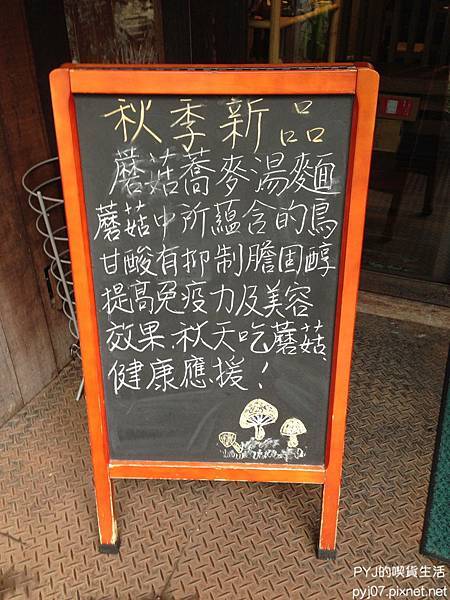 秋季新品
蘑菇蕎麥湯麵
蘑菇中所蘊含的鳥
甘酸有抑制膽固醇
提高免疫力及美容
效果.秋天吃蘑菇
健康應援!
PYJ的喫貨生活
pyj07.pixnet.net